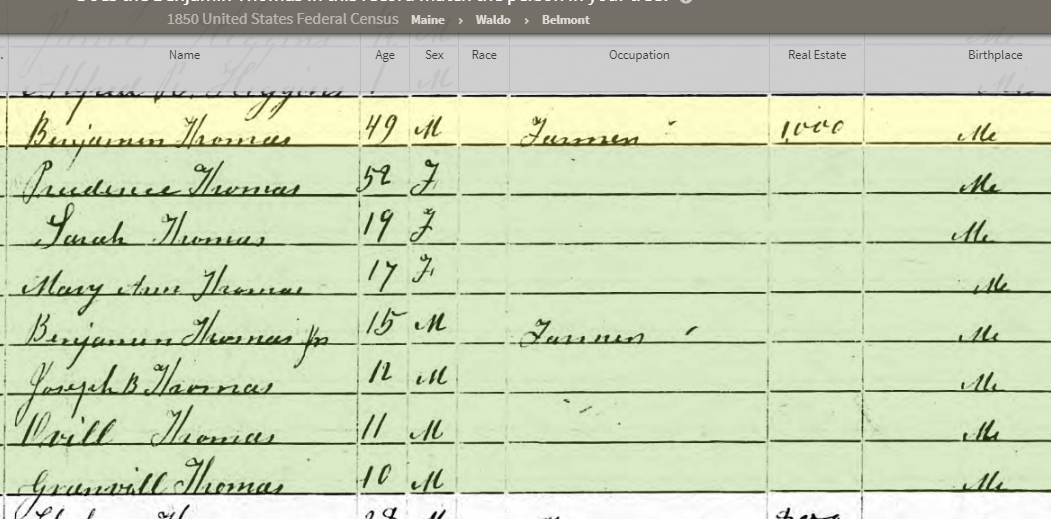 Does the Benjamin Thomas in this record match the person in your tree?
1850 United States Federal Census Maine › Waldo › Belmont
Name Age Sex Race Occupation Real Estate Birthplace
Alfred R. Higgins 1 M Me
Benjamin Thomas 49 M Farmer 1,000 Me
Prudence Thomas 52 F Me
Sarah Thomas 19 F Me
Mary Ann Thomas 17 F Me
Benjamin Thomas Jr 15 M Farmer Me
Joseph B Thomas 12 M Me
Ovill Thomas 11 M Me
Granvill Thomas 10 M Me